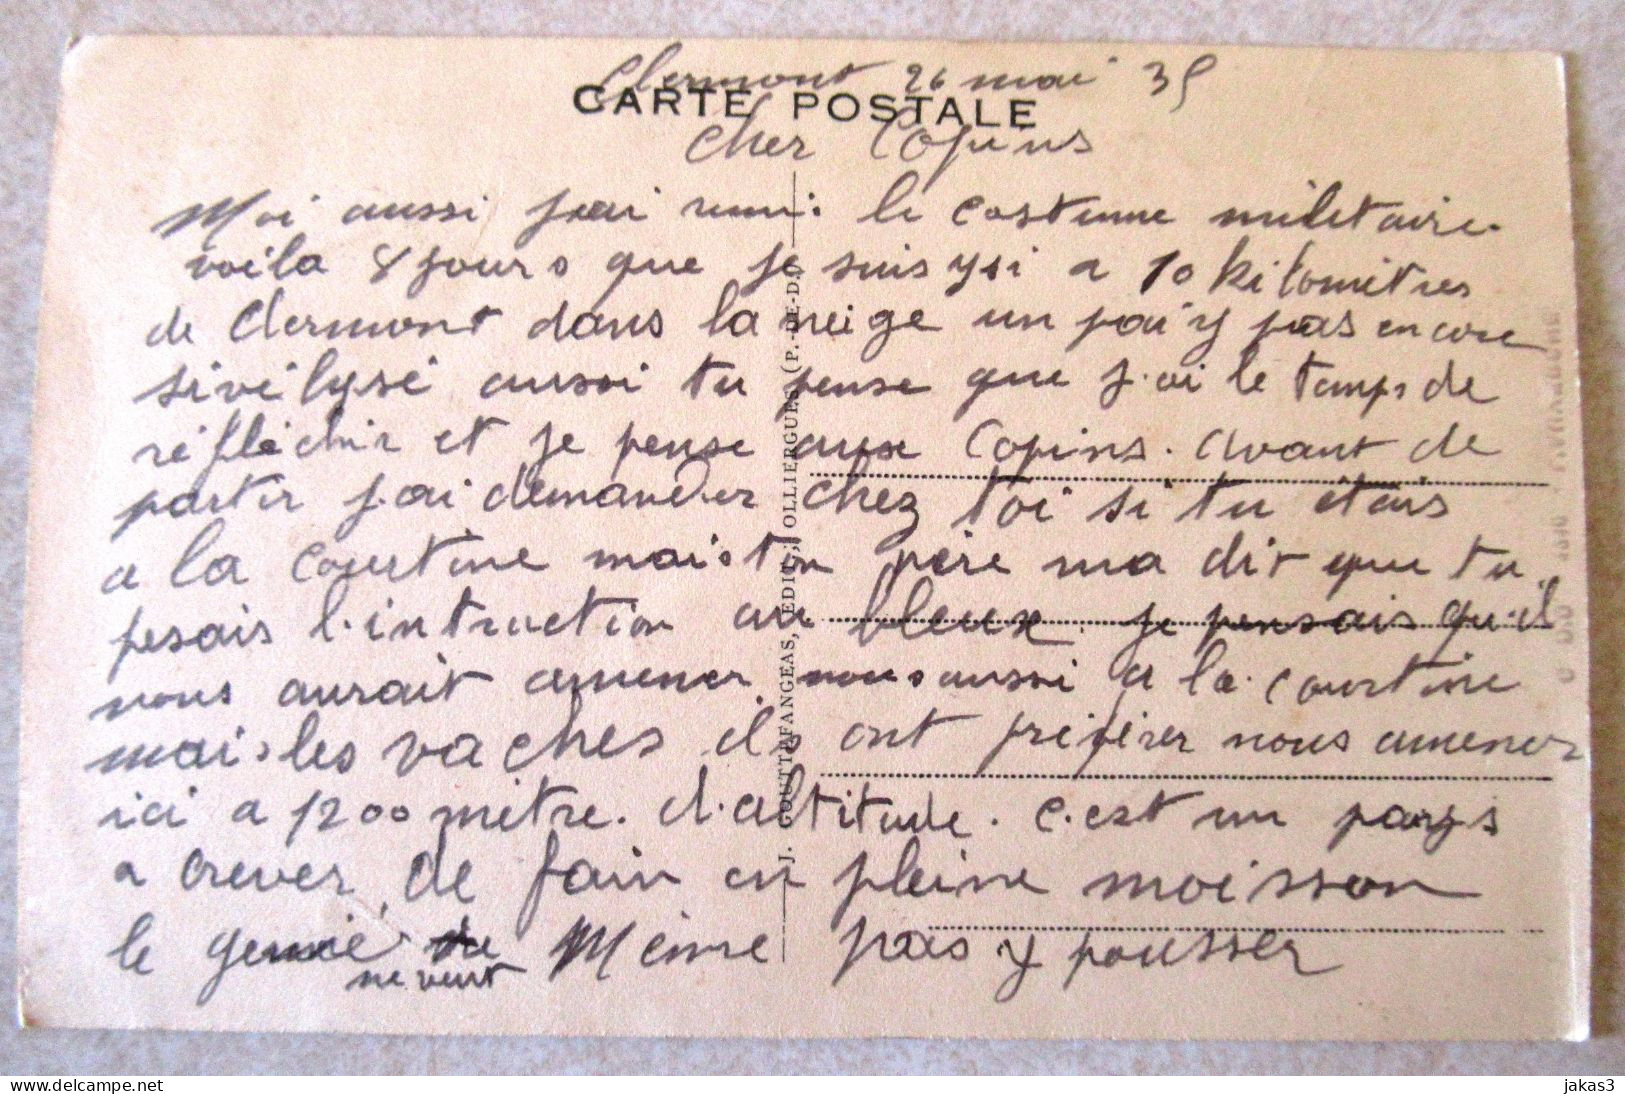 Clermont 26 mai 35
CARTE POSTALE
Cher Copins
Moi aussi j'ai remi le costume militaire.
voila 8 jours que je suis ysi a 10 kilomètres
de Clermont dans la neige un pai y pas encore
sivélysé aussi tu pense que j.ai le temps de
réfléchir et je pense aux Copins. avant de
partir j.ai demander chez toi si tu étais
a la Courtine mais ton père ma dit que tu
fesais l.intruction au bleux. je pensais qu.il
nous aurait amener nous aussi a la Courtine
mais les vaches ils ont préférer nous amener
ici a 1200 mètre. d.altitude. c.est un pays
a crever de faim en pleine moisson
le genie
ne veut Même pas y pousser
J. GOUTTEFANGEAS, EDIT., OLLIERGUES (P.-DE-D.)
delcampe.net
jakas3